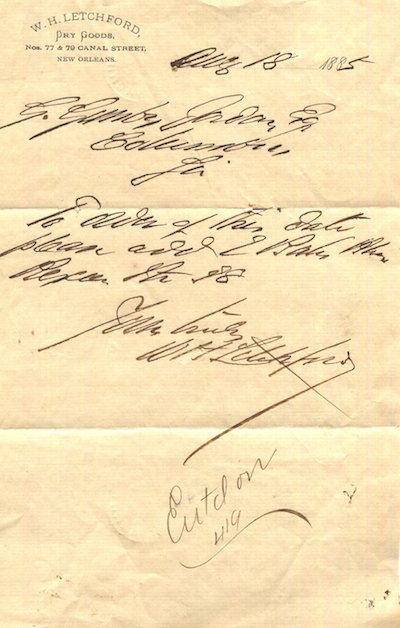 W. H. LETCHFORD,
DRY GOODS,
NOS. 77 & 79 CANAL STREET,
NEW ORLEANS.
Aug 18 1885
G. Gunby Jordan, Es
Columbus,
Ga
To order of this date
please add 2 Bales
Yours truly
WH Letchford
419